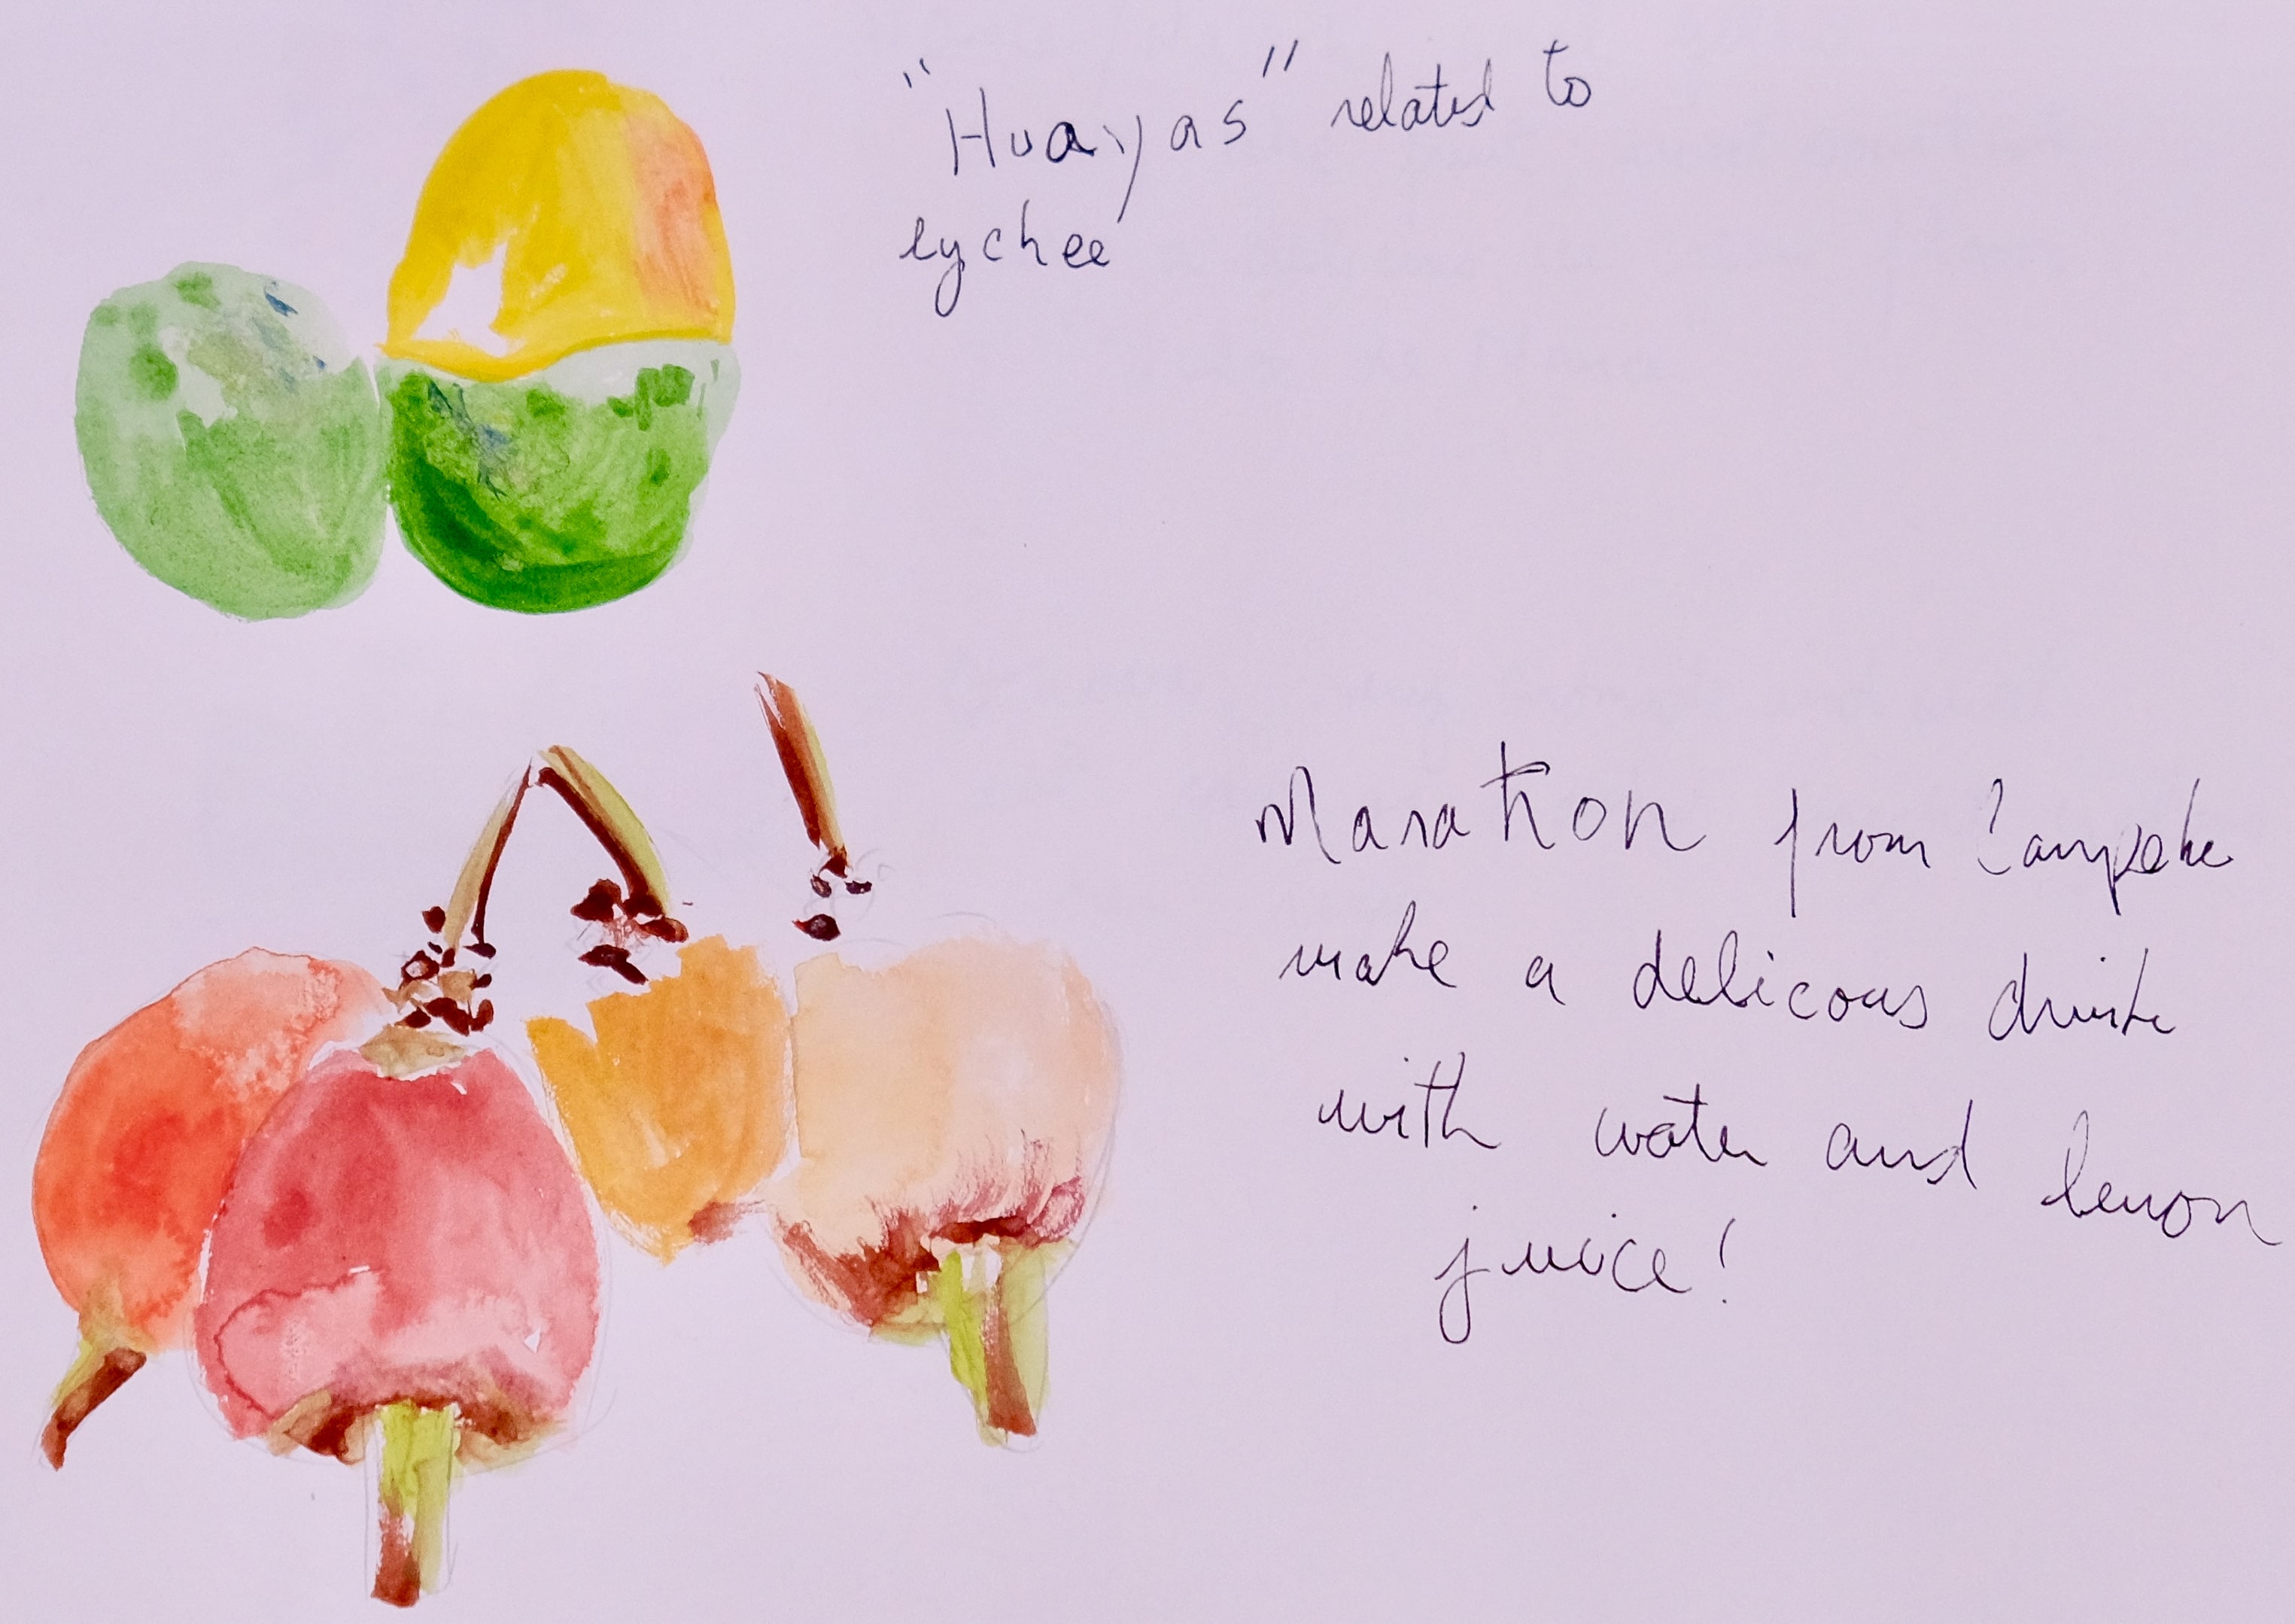 "Huayas" related to
lychee
Marathon from Campeche
make a delicous drink
with water and lemon
juice!